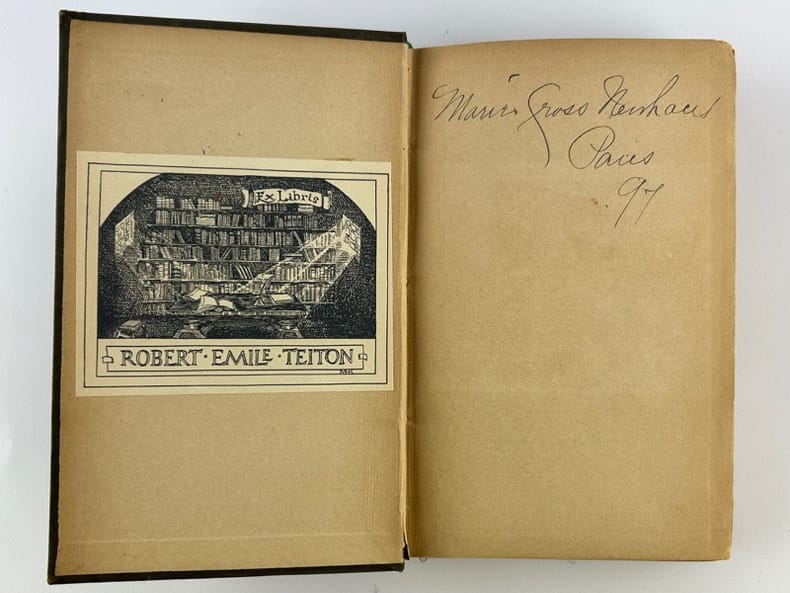 Ex Libris
ROBERT · EMILE · TEITON
Marie Gross Newhaus
Paris
97